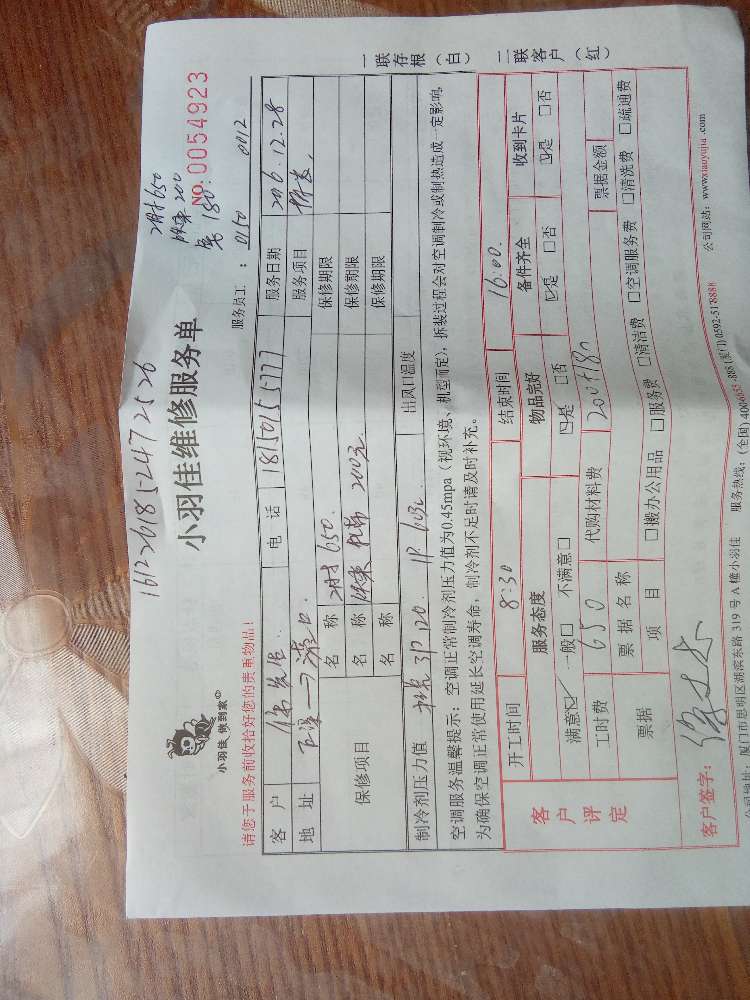 1612261852472526
小羽佳 做到家
小羽佳维修服务单
650
200
180
NO: 0054923
请您于服务前收拾好您的贵重物品!
服务员工： 0150 0012
客户
电话 18150155777
服务日期 2016.12.28
地址
服务项目
保修项目
名称 650
保修期限
名称 200元
保修期限
名称
保修期限
制冷剂压力值
出风口温度
空调服务温馨提示：空调正常制冷剂压力值为0.45mpa（视环境、机型而定），拆装过程会对空调制冷或制热造成一定影响，
为确保空调正常使用延长空调寿命，制冷剂不足时请及时补充。
一联存根（白） 二联客户（红）
客户评定
开工时间 8:30 结束时间 16:00
服务态度 物品完好 备件齐全 收到卡片
满意☑ 一般□ 不满意□ ☑是 □否 ☑是 □否 ☑是 □否
工时费 650 代购材料费 200+180
票据 票据名称 票据金额
项目 □搬办公用品 □服务费 □清洁费 □空调服务费 □清洗费 □疏通费
客户签字：
公司地址：厦门市思明区湖滨东路 319 号 A 幢小羽佳 服务热线：(全国) 4006655-888 (厦门) 0592-5188888 公司网站：www.xiaoyujia.com